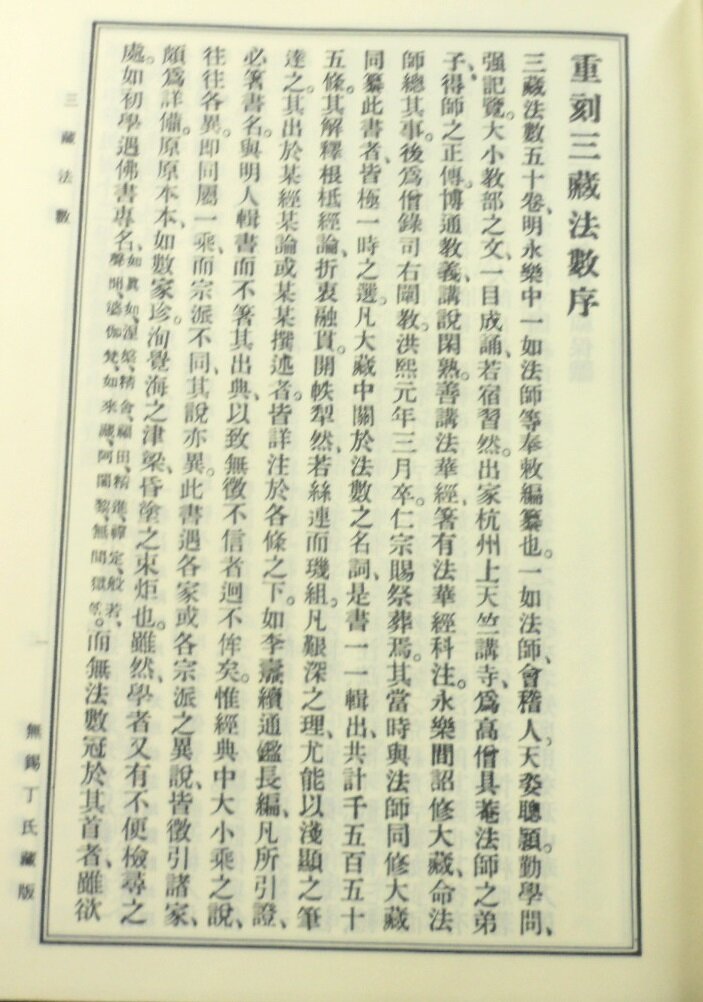 重刻三藏法數序
三藏法數五十卷、明永樂中一如法師等奉敕編纂也。一如法師、會稽人。天姿聰穎。勤學問、
强記覽。大小教部之文、一目成誦、若宿習然。出家杭州上天竺講寺、爲高僧具菴法師之弟
子、得師之正傳。博通教義、講說閑熟。善講法華經、箸有法華經科注。永樂間詔修大藏、命法
師總其事。後爲僧錄司右闡教。洪熙元年三月卒。仁宗賜祭葬焉。其當時與法師同修大藏
同纂此書者、皆極一時之選。凡大藏中關於法數之名詞、是書一一輯出、共計千五百五十
五條。其解釋根柢經論、折衷融貫。開帙犁然、若絲連而璣組。凡艱深之理、尤能以淺顯之筆
達之。其出於某經某論或某某撰述者。皆詳注於各條之下。如李燾續通鑑長編、凡所引證、
必箸書名。與明人輯書而不箸其出典、以致無徵不信者迥不侔矣。惟經典中大小乘之說、
往往各異。即同屬一乘、而宗派不同、其說亦異。此書遇各家或各宗派之異說、皆徵引諸家、
頗爲詳備。原原本本、如數家珍。洵覺海之津梁、昏塗之束炬也。雖然、學者又有不便檢尋之
處。如初學遇佛書專名、如眞如、涅槃、精舍、福田、精進、禪定、般若、聲聞、婆伽梵、如來藏、阿闍黎、無間獄等。而無法數冠於其首者、雖欲
三藏法數
一
無錫丁氏藏版